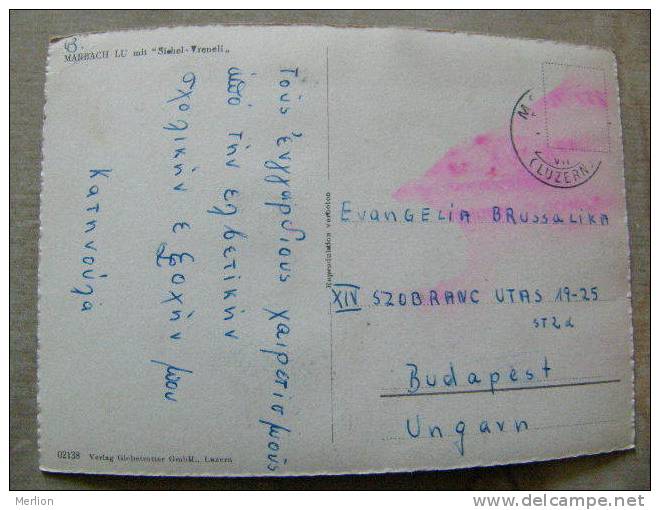 MARBACH LU mit "Sichel-Vreneli"
Τούς ἐγγαρδίους χαιρετισμούς
ἀπό τήν ἐλβετικήν
ἐξοχήν μου
Κατηνούλα
Reproduktion verboten
M
VII
(LUZERN)
EVANGELIA BRUSSALIKA
XIV SZOBRANC UTAS 19-25
ST 2
Budapest
Ungarn
02138 Verlag Globetrotter GmbH., Luzern
Merlion
http://www.delcampe.net